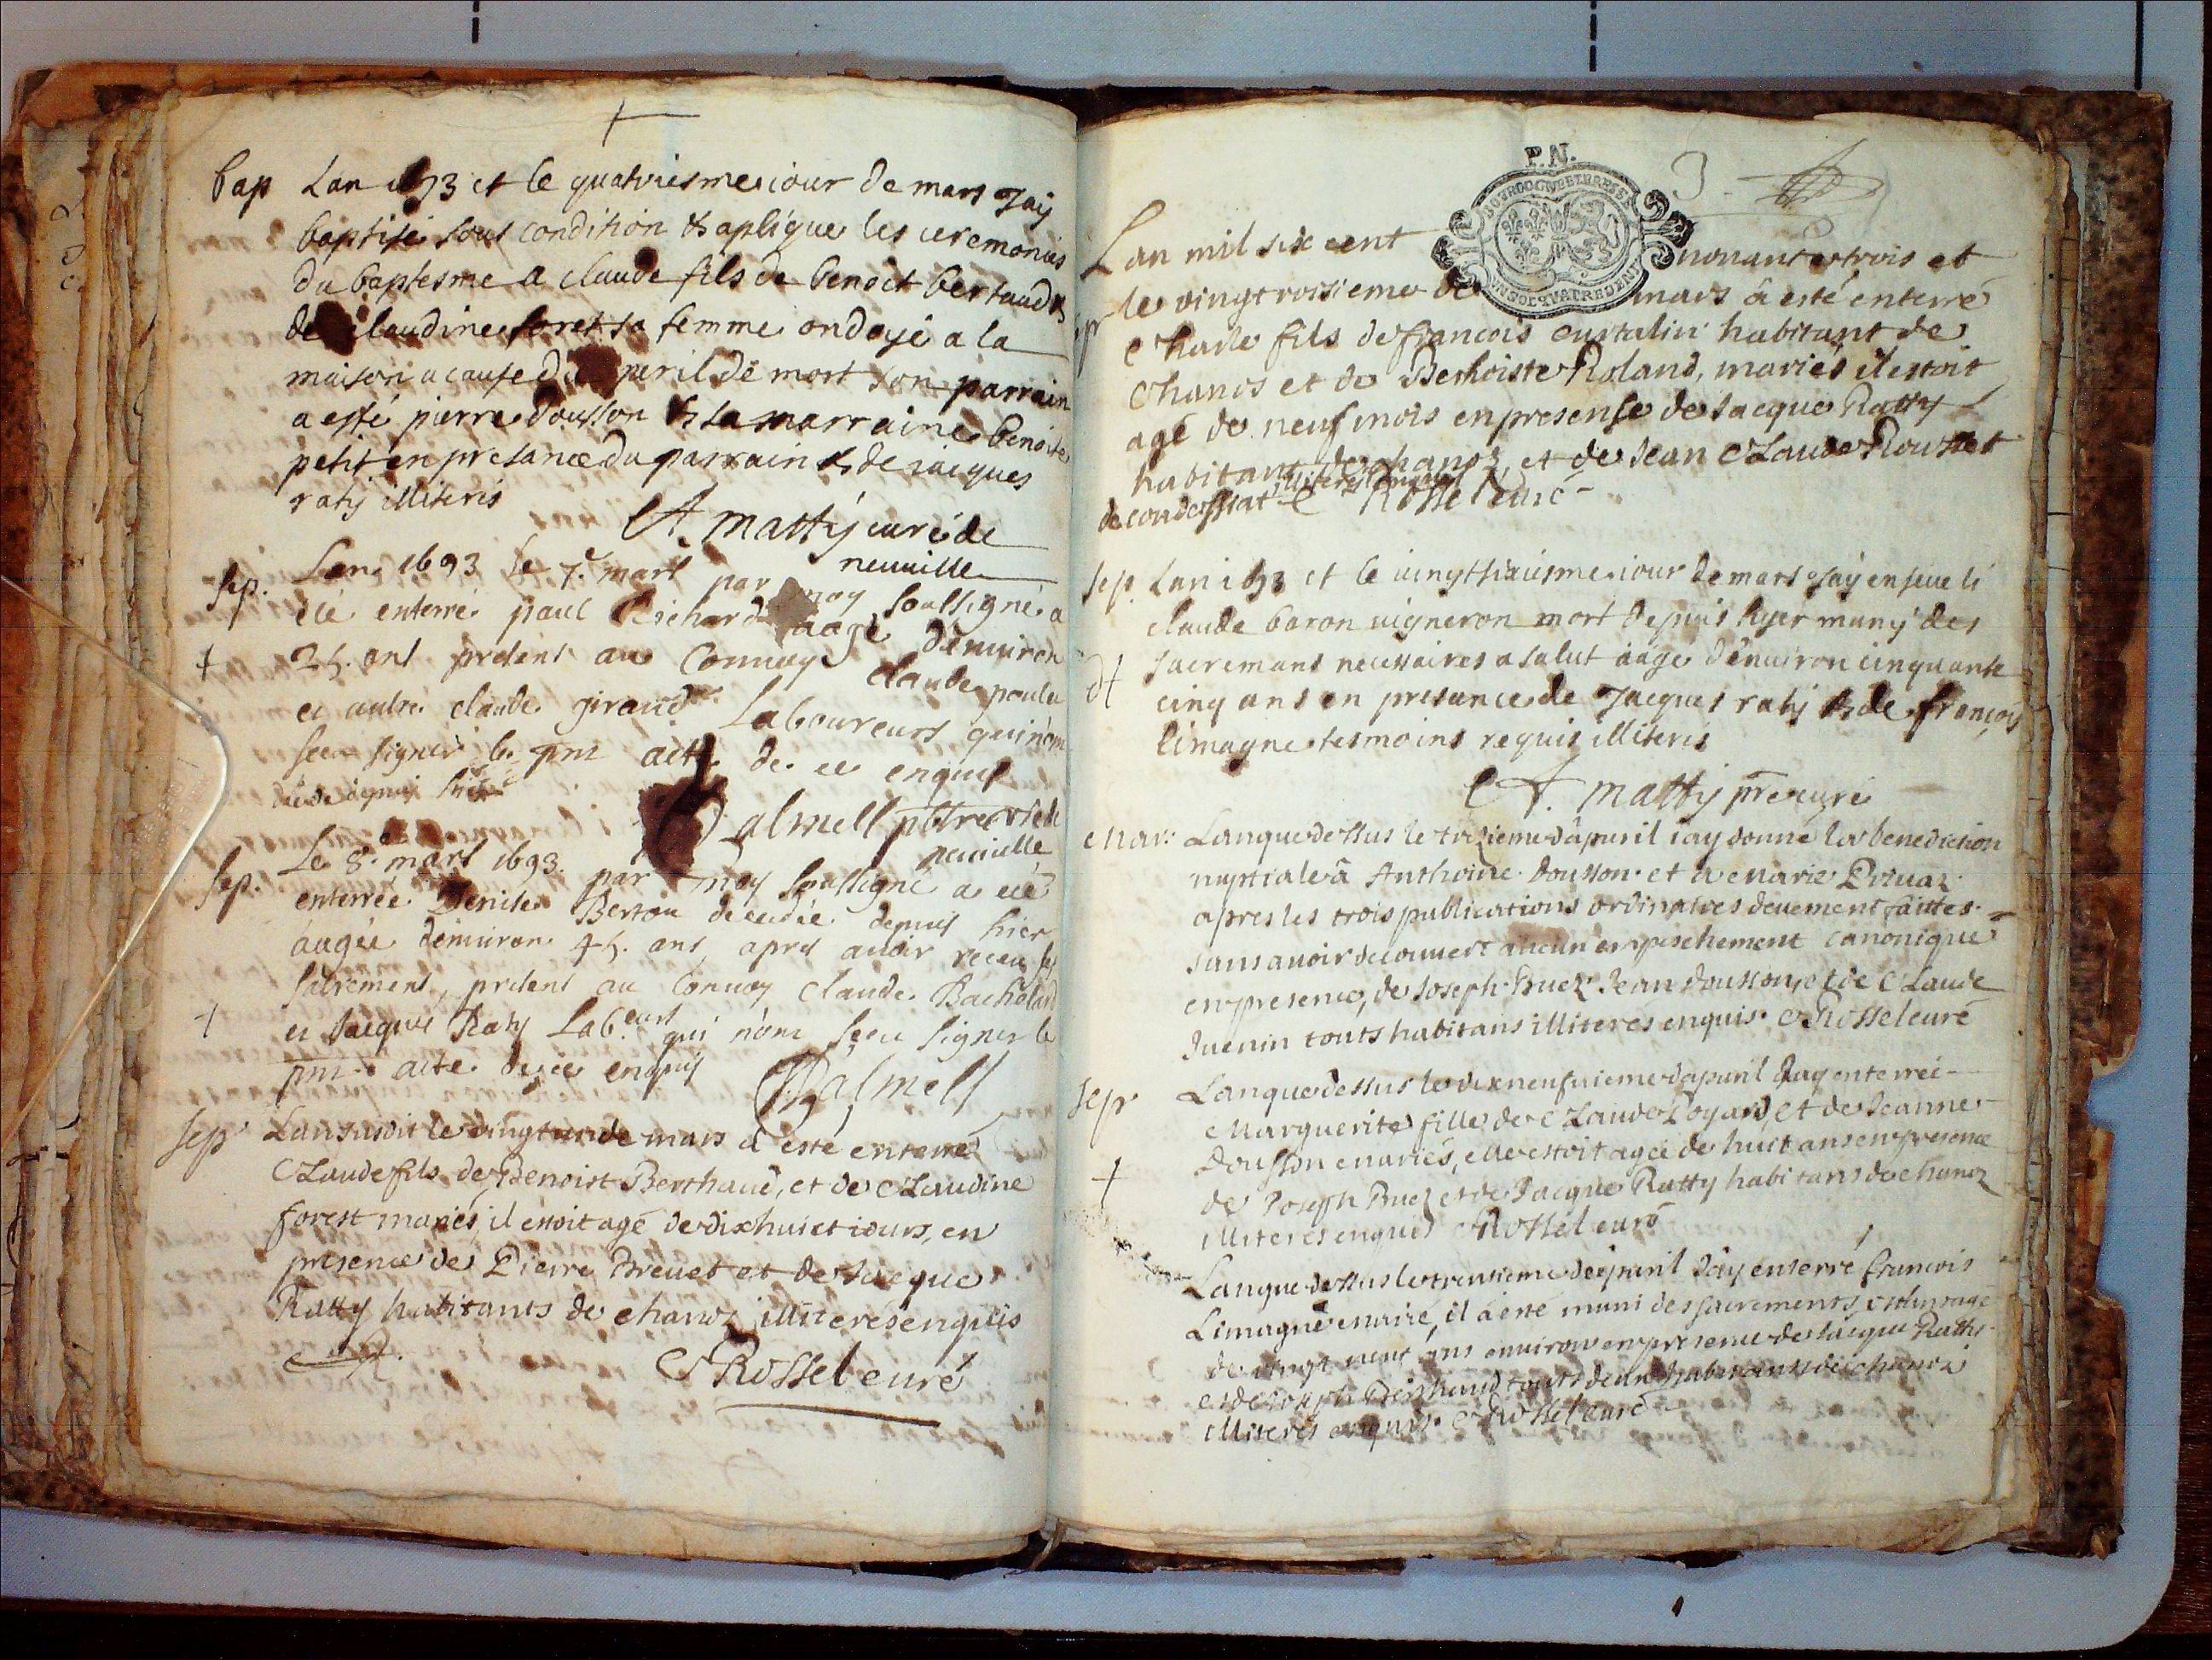 bap Lan 1693 et le quatriesme iour de mars Jaij
baptisé sous condition & apliqué les ceremonies
du baptesme a claude fils de benoit bertaud &
de claudine foret sa femme ondoyé a la
maison a cause du peril de mort son parrain
a esté pierre dousson & sa marraine benoite
petit en presance du parrain & de jacques
ratij illiteris
A. mattij curé de
neuuille
sep. Lan 1693 le 7.e mars par moy soussigné a
été enterré paul Richard aagé denuiron
25. ans present au Conuoy claude
et autre claude giraud Laboureurs qui n'ont
sceu signer le pnt acte de ce enquis
Dalmell pbtre
neuuille
sep. Le 8.e mars 1693. par moy soussigné a eté
enterrée Denise Berton decedée depuis hier
aagée denuiron 45. ans, apres auoir receu ses
sacrements, present au Conuoy Claude Bachelard
et Jacque Raty Lab.eurs qui n'ont sceu signer le
pnt acte de ce enquis
Dalmell
sep Lan susdit le vingt de mars a esté enterré
CLaude fils de Benoist Berthaud, et de CLaudine
forest mariés, il estoit agé de dixhuict iours, en
presence de Pierre Breuet et de Jacque
Ratty habitants de chanoz illiterés enquis
Rossel curé
P.N.
3
Lan mil six cent nonante trois et
le vingtroisieme de mars a esté enterré
Charle fils de francois curtalin habitant de
Chanos et de Benoiste Roland, mariés il estoit
agé de neuf mois en presense de Jacque Ratty
habitant de chanoz, et de Jean CLaude Rousset
de condessiat illiterés enquis Rossel curé
sep. Lan 1693 et le uingtsixiesme iour de mars Jaij enseueli
claude baron uigneron mort depuis hyer munij des
sacremans necessaires a salut aagé d'enuiron cinquante
cinq ans en presance de Jacques ratij & de françois
limagne tesmoins requis illiteris
A. mattij pre curé
Mar: Lan que dessus le trezieme d'apuril iay donné la benediction
nuptiale a Anthoine dousson et a Marie Priuaz
apres les trois publications ordinaires deuement faittes
sans auoir decouuert aucun empeschement canonique
en presence, de Joseph Buez Jean dousson, et de CLaude
Juenin touts habitans illiteres enquis. Rossel curé
sep Lan que dessus le dixneufuieme dapuril Jay enterré
Marguerite fille de CLaude Loyard, et de Jeanne
Dousson mariés, elle estoit agée de huit ans en presence
de Joseph Buez et de Jacque Ratty habitans de chanoz
illiteres enquis Rossel curé
Lan que dessus le trentieme de apuril Jay enterré francois
Limagne marié, il a esté muni des sacrements, estant agé
de vingt neuf ans enuiron en presence de Jacque Ratty
et de Joseph Berthaud touts deux habitants de chanoz
illiterés enquis. Rossel curé